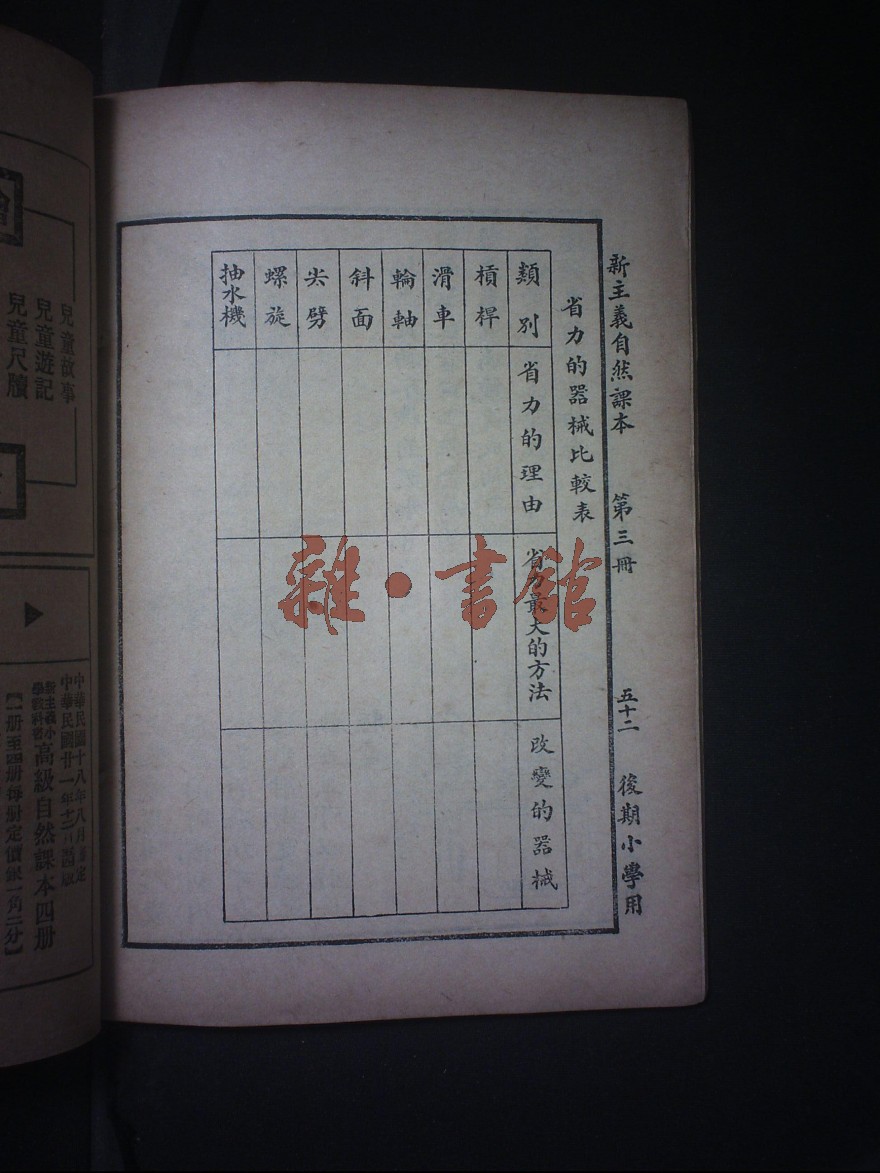 新主義自然課本 第三冊 五十二 後期小學用
省力的器械比較表
類別 省力的理由 省力最大的方法 改變的器械
槓桿
滑車
輪軸
斜面
尖劈
螺旋
抽水機
雜·書館
兒童故事
兒童遊記
兒童尺牘
中華民國十八年八月
中華民國廿一年
新主義小學教科書 高級自然課本四册
【一册至四册每册定價銀一角二分】